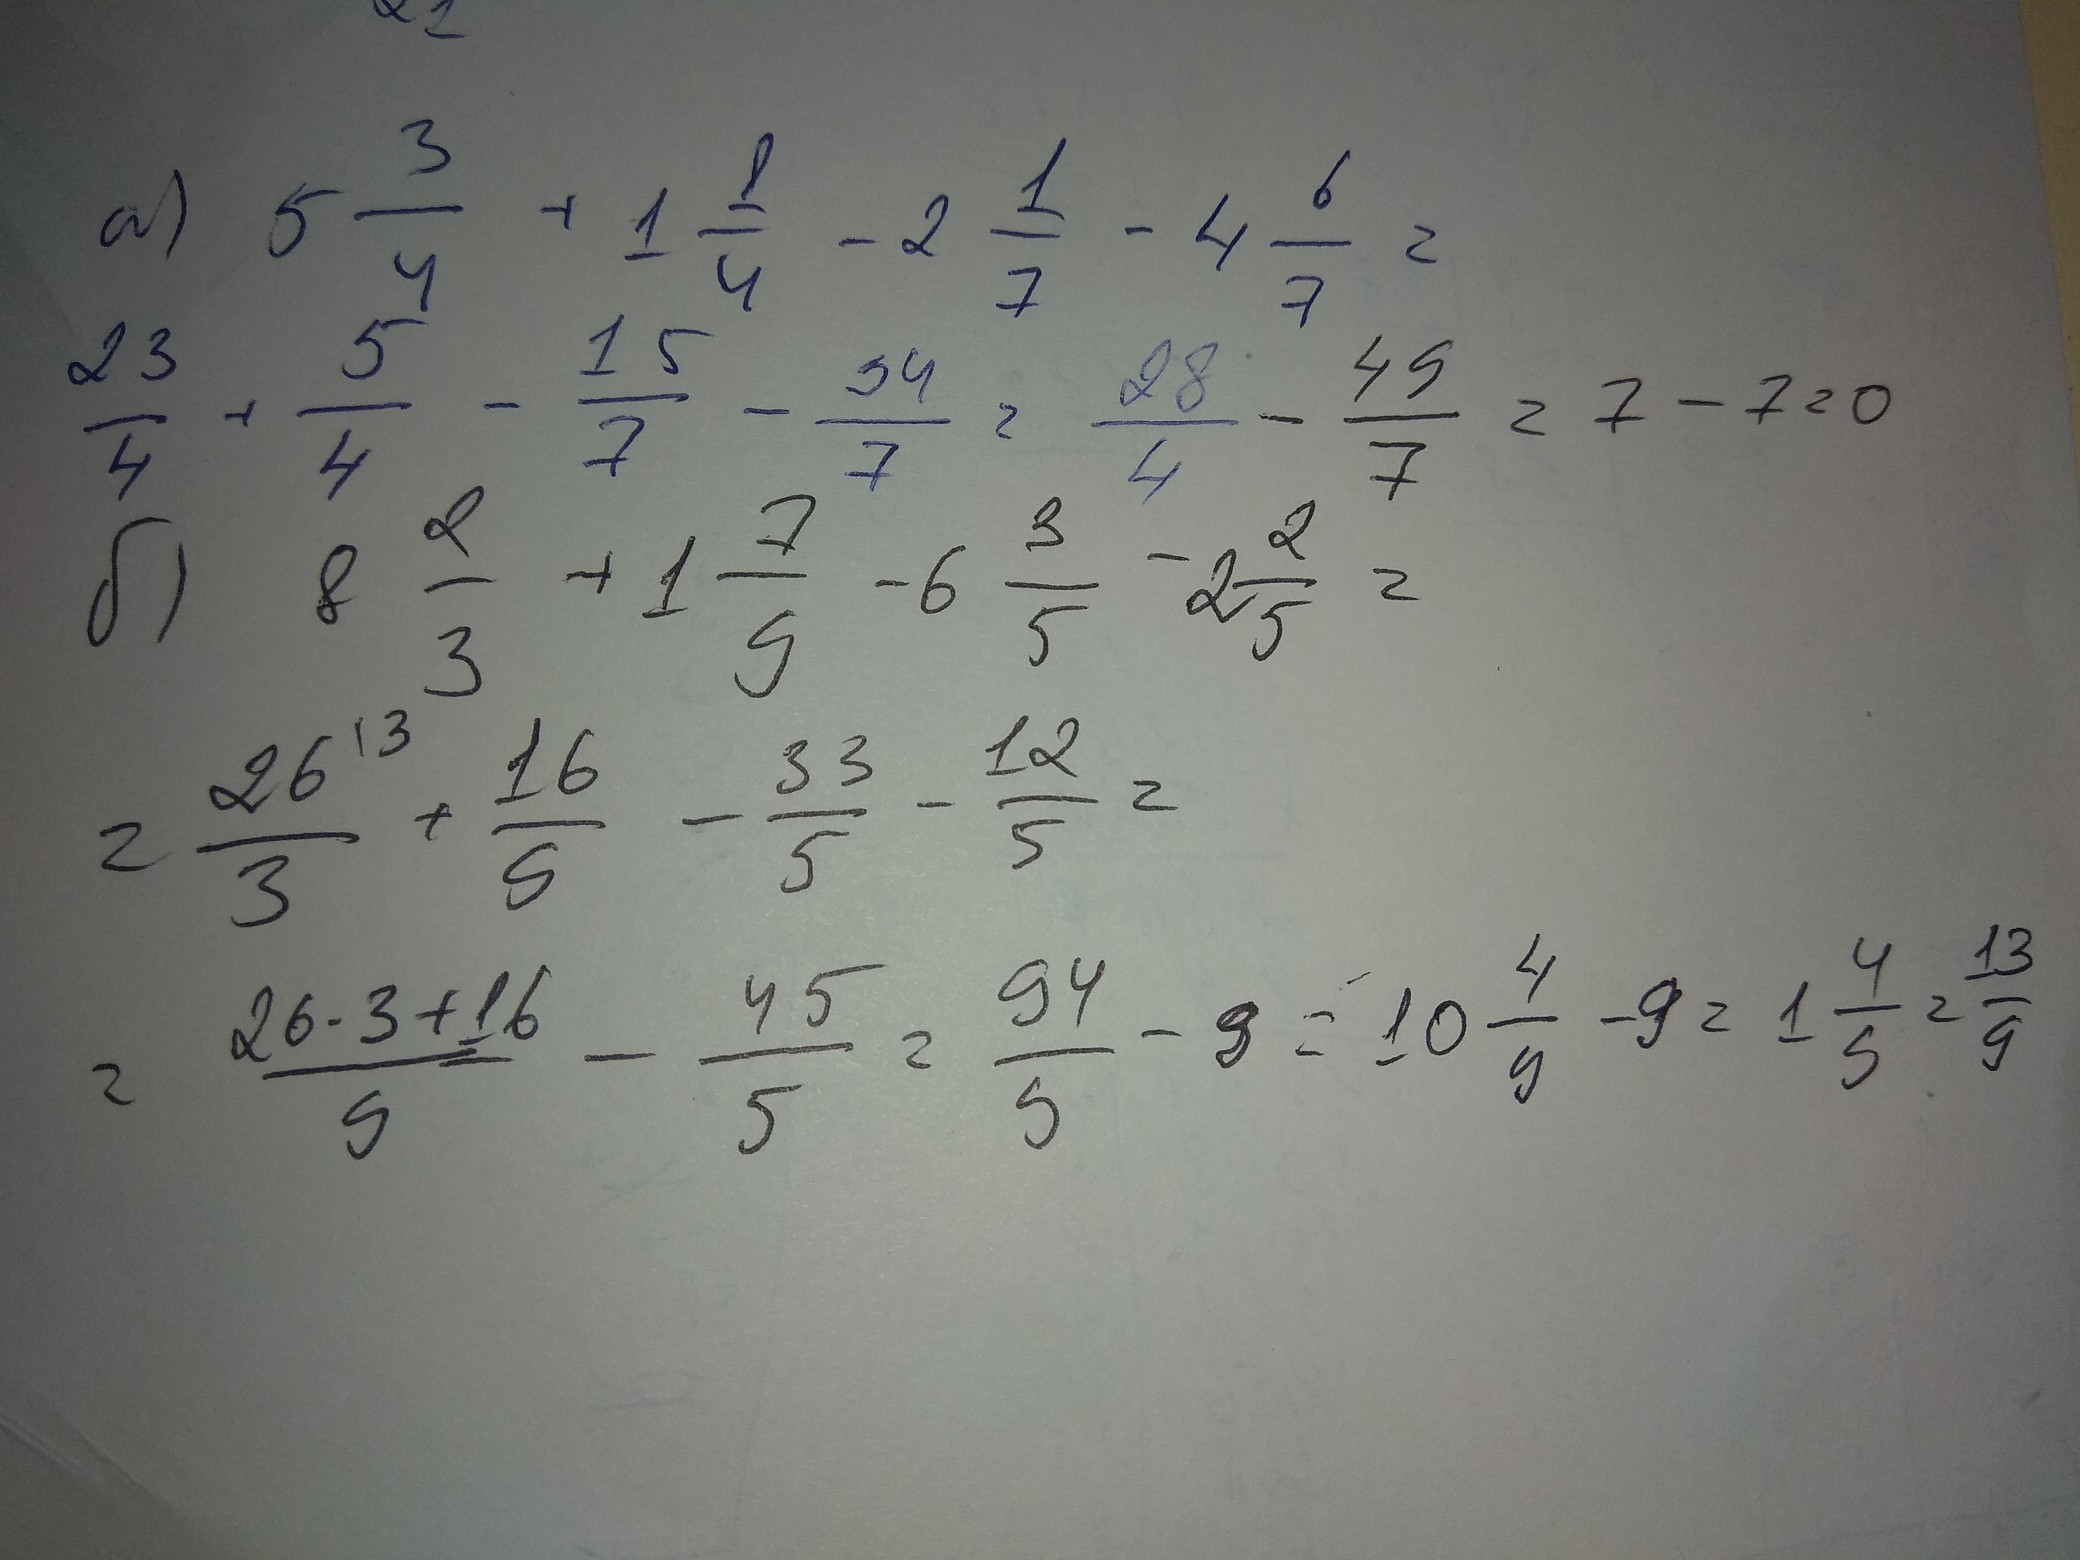 21
а) 5 3/4 + 1 1/4 - 2 1/7 - 4 6/7 =
23/4 + 5/4 - 15/7 - 34/7 = 28/4 - 49/7 = 7 - 7 = 0
б) 8 2/3 + 1 7/9 - 6 3/5 - 2 2/5 =
= 26\3/3 + 16/9 - 33/5 - 12/5 =
= 26·3+16/9 - 45/5 = 94/9 - 9 = 10 4/9 - 9 = 1 4/9 = 13/9